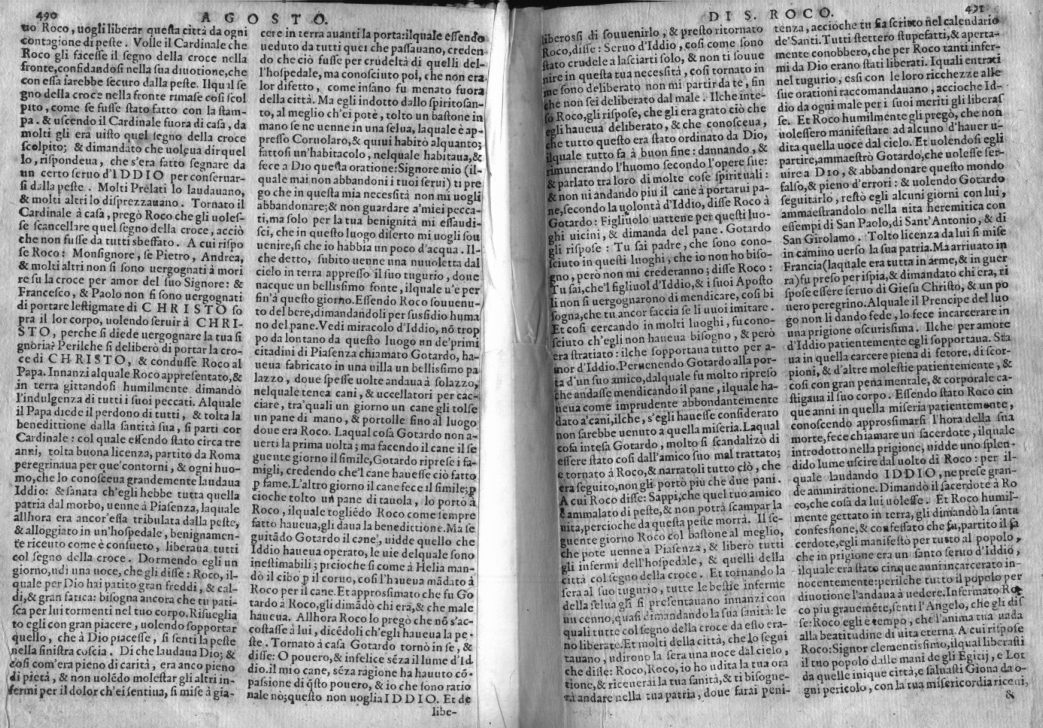 490
AGOSTO.
uo Roco, uogli liberar questa città da ogni
contagione di peste. Volle il Cardinale che
Roco gli facesse il segno della croce nella
fronte, confidandosi nella sua diuotione, che
con essa sarebbe securo dalla peste. Ilqual se
gno della croce nella fronte rimase così scol
pito, come se fusse stato fatto con la stam-
pa. & uscendo il Cardinale fuora di casa, da
molti gli era uisto quel segno della croce
scolpito; & dimandato che uoleua dir quel
lo, rispondeua, che s'era fatto segnare da
un certo seruo d'IDDIO per conseruar-
si dalla peste. Molti Prelati lo laudauano,
& molti altri lo disprezzauano. Tornato il
Cardinale à casa, pregò Roco che gli uoles-
se scancellare quel segno della croce, acciò
che non fusse da tutti sbeffato. A cui rispo
se Roco: Monsignore, se Pietro, Andrea,
& molti altri non si sono uergognati à mori
re su la croce per amor del suo Signore: &
Francesco, & Paolo non si sono uergognati
di portare le stigmate di CHRISTO so
pra il lor corpo, uolendo seruir à CHRI-
STO, perche si diede uergognare la tua si
gnoria? Perilche si deliberò di portar la cro-
ce di CHRISTO, & condusse Roco al
Papa. Innanzi alquale Roco appresentato, &
in terra gittandosi humilmente dimandò
l'indulgenza di tutti i suoi peccati. Alquale
il Papa diede il perdono di tutti, & tolta la
benedittione dalla santità sua, si partì col
Cardinale: col quale essendo stato circa tre
anni, tolta buona licenza, partito da Roma
peregrinaua per que' contorni, & ogni huo-
mo, che lo conosceua grandemente laudaua
Iddio: & sanata ch'egli hebbe tutta quella
patria dal morbo, uenne à Piasenza, laquale
allhora era ancor'essa tribulata dalla peste,
& alloggiato in un'hospedale, benignamen-
te riceuto come è consueto, liberaua tutti
col segno della croce. Dormendo egli un
giorno, udì una uoce, che gli disse: Roco, il-
quale per Dio hai patito gran freddi, & cal-
di, & gran fatica: bisogna ancora che tu pati-
sca per lui tormenti nel tuo corpo. Risueglia
to egli con gran piacere, uolendo sopportar
quello, che à Dio piacesse, si sentì la peste
nella sinistra coscia. Di che laudaua Dio; &
così com'era pieno di carità, era anco pieno
di pietà, & non uolẽdo molestar gli altri in-
fermi per il dolor ch'ei sentiua, si mise à gia-
cere in terra auanti la porta: ilquale essendo
ueduto da tutti quei che passauano, creden
do che ciò fusse per crudeltà di quelli del-
l'hospedale, ma conosciuto poi, che non era
lor difetto, come insano fu menato fuora
della città. Ma egli indotto dallo spirito san-
to, al meglio ch'ei potè, tolto un bastone in
mano se ne uenne in una selua, laquale è ap-
presso Coruolaro, & quiui habitò alquanto;
fattosi un'habitacolo, nelquale habitaua, &
fece a Dio questa oratione: Signore mio (il-
quale mai non abbandoni i tuoi serui) ti pre
go che in questa mia necessità non mi uogli
abbandonare; & non guardare a'miei pecca-
ti, ma solo per la tua benignità mi essaudi-
sci, che in questo luogo diserto mi uogli sou
uenire, si che io habbia un poco d'acqua. Il-
che detto, subito uenne una nuuoletta dal
cielo in terra appresso il suo tugurio, doue
nacque un bellissimo fonte, ilquale u'è per
fin'à questo giorno. Essendo Roco souuenu-
to del bere, dimandandoli per sussidio huma
no del pane. Vedi miracolo d'Iddio, nõ trop
po da lontano da questo luogo un de'primi
cittadini di Piasenza chiamato Gotardo, ha-
ueua fabricato in una uilla un bellissimo pa
lazzo, doue spesse uolte andaua à solazzo,
nelquale tenea cani, & uccellatori per cac-
ciare, tra'quali un giorno un cane gli tolse
un pane di mano, & portolle sino al luogo
doue era Roco. Laqual cosa Gotardo non a-
uertì la prima uolta; ma facendo il cane il se
guente giorno il simile, Gotardo riprese i fa-
migli, credendo che'l cane hauesse ciò fatto
p fame. L'altro giorno il cane fece il simile; p
cioche tolto un pane di tauola, lo portò à
Roco, ilquale togliẽdo Roco come sempre
fatto haueua, gli daua la benedittione. Ma se
guitãdo Gotardo il cane, uidde quello che
Iddio haueua operato, le uie delquale sono
inestimabili; percioche si come à Helia man-
dò il cibo p il coruo, così l'haueua mãdato à
Roco per il cane. Et approssimato che fu Go
tardo à Roco, gli dimãdò chi era, & che male
haueua. Allhora Roco lo pregò che nõ s'ac-
costasse à lui, dicẽdoli ch'egli haueua la pe-
ste. Tornato à casa Gotardo tornò in se, &
disse: O pouero, & infelice sẽza il lume d'Id
dio. il mio cane, sẽza ragione ha hauuto cõ-
passione di q̃sto pouero, & io che sono ratio
nale nò; questo non uoglia IDDIO. Et de
libe-
DI S. ROCO.
491
liberossi di souuenirlo, & presto ritornato
Roco, disse: Seruo d'Iddio, così come sono
stato crudele a lasciarti solo, & non ti souue
nire in questa tua necessità, così tornato in
me sono deliberato non mi partir da te, fin
che non sei deliberato dal male. Ilche inte-
so Roco, gli rispose, che gli era grato ciò che
egli haueua deliberato, & che conosceua,
che tutto questo era stato ordinato da Dio,
ilquale tutto fa à buon fine: dannando, &
rimunerando l'huomo secondo l'opere sue:
& parlato tra loro di molte cose spirituali:
& non ui andando piu il cane à portarui pa-
ne, secondo la uolontà d'Iddio, disse Roco à
Gotardo: Figliuolo uattene per questi luo-
ghi uicini, & dimanda del pane. Gotardo
gli rispose: Tu sai padre, che sono cono-
sciuto in questi luoghi, che io non ho biso-
gno, però non mi crederanno; disse Roco:
Tu sai, che'l figliuol d'Iddio, & i suoi Aposto
li non si uergognarono di mendicare, così bi
sogna, che tu ancor faccia se li uuoi imitare.
Et così cercando in molti luoghi, fu cono-
sciuto ch'egli non haueua bisogno, & però
era stratiato: ilche sopportaua tutto per a-
mor d'Iddio. Peruenendo Gotardo alla por-
ta d'un suo amico, dalquale fu molto ripreso
che andasse mendicando il pane, ilquale ha-
ueua come imprudente abbondantemente
dato a'cani, ilche, s'egli hauesse considerato
non sarebbe uenuto a quella miseria. Laqual
cosa intesa Gotardo, molto si scandalizò di
essere stato così dall'amico suo mal trattato;
e tornato à Roco, & narratoli tutto ciò, che
era seguito, non gli portò piu che due pani.
A cui Roco disse: Sappi, che quel tuo amico
è ammalato di peste, & non potrà scampar la
uita, percioche da questa peste morrà. Il se-
guente giorno Roco col bastone al meglio,
che pote uenne a Piasenza, & liberò tutti
gli infermi dell'hospedale, & quelli della
città col segno della croce. Et tornando la
sera al suo tugurio, tutte le bestie inferme
della selua gli si presentauano innanzi con
un cenno, quasi dimandando la sua sanità: le
quali tutte col segno della croce da esso era-
no liberate. Et molti della città, che lo segui
tauano, udirono la sera una uoce dal cielo,
che disse: Roco, Roco, io ho udita la tua ora
tione, & ricenerai la tua sanità, & ti bisogne-
rà andare nella tua patria, doue farai peni-
tenza, accioche tu sia scritto nel calendario
de'Santi. Tutti stettero stupefatti, & aperta-
mente conobbero, che per Roco tanti infer-
mi da Dio erano stati liberati. Iquali entrati
nel tugurio, essi con le loro ricchezze alle
sue orationi raccomandauano, accioche Id-
dio da ogni male per i suoi meriti gli liberas
se. Et Roco humilmente gli pregò, che non
uolessero manifestare ad alcuno d'hauer u-
dita quella uoce dal cielo. Et uolendosi egli
partire, ammaestrò Gotardo, che uolesse ser-
uire a DIO, & abbandonare questo mondo
falso, & pieno d'errori: & uolendo Gotardo
seguitarlo, restò egli alcuni giorni con lui,
ammaestrandolo nella uita heremitica con
essempi di San Paolo, di Sant'Antonio, & di
San Girolamo. Tolto licenza da lui si mise
in camino uerso la sua patria. Ma arriuato in
Francia (laquale era tutta in arme, & in guer
ra) fu preso per ispia, & dimandato chi era, ri
spose essere seruo di Giesu Christo, & un po
uero peregrino. Alquale il Prencipe del luo
go non li dando fede, lo fece incarcerare in
una prigione oscurissima. Ilche per amore
d'Iddio patientemente egli sopportaua. Sta
ua in quella carcere piena di fetore, di scor-
pioni, & d'altre molestie patientemente, &
così con gran pena mentale, & corporale ca-
stigaua il suo corpo. Essendo stato Roco cin
que anni in quella miseria patientemente,
conoscendo approssimarsi l'hora della sua
morte, fece chiamare un sacerdote, ilquale
introdotto nella prigione, uide uno splen-
dido lume uscire dal uolto di Roco: per il-
quale laudando IDDIO, ne prese gran-
de ammiratione. Dimandò il sacerdote à Ro
co, che cosa da lui uolesse. Et Roco humil-
mente gettato in terra, gli dimandò la santa
confessione, & confessato che fu, partito il sa
cerdote, egli manifestò per tutto al popolo,
che in prigione era un santo seruo d'Iddio,
ilquale era stato cinque anni incarcerato in-
nocentemente: perilche tutto il popolo per
diuotione l'andaua à uedere. Infermato Ro-
co piu grauemẽte, sentì l'Angelo, che gli dis
se: Roco egli è tempo, che l'anima tua uada
alla beatitudine di uita eterna. A cui rispose
Roco: Signor clementissimo, ilqual liberasti
il tuo popolo dalle mani de gli Egitij, e Lot
da quelle inique città, e saluasti Giona da o-
gni pericolo, con la tua misericordia riceui,
&